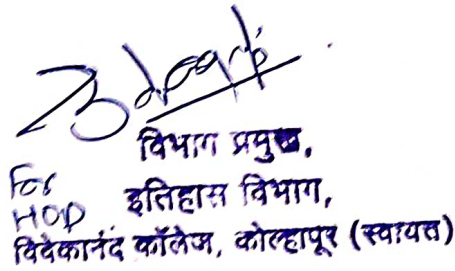 विभाग प्रमुख,
For
इतिहास विभाग,
HOD
विवेकानंद कॉलेज, कोल्हापूर (स्वायत्त)